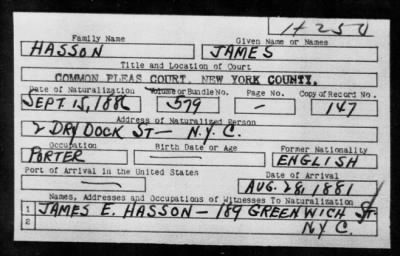 H 250
Family Name Given Name or Names
HASSON JAMES
Title and Location of Court
COMMON PLEAS COURT, NEW YORK COUNTY.
Date of Naturalization Volume or Bundle No. Page No. Copy of Record No.
SEPT. 15, 1886 579 - 147
Address of Naturalized Person
2 DRY DOCK ST - N.Y.C.
Occupation Birth Date or Age Former Nationality
PORTER — ENGLISH
Port of Arrival in the United States Date of Arrival
— AUG. 28, 1881
Names, Addresses and Occupations of Witnesses To Naturalization
1 JAMES E. HASSON - 189 GREENWICH St.
2 N.Y.C.